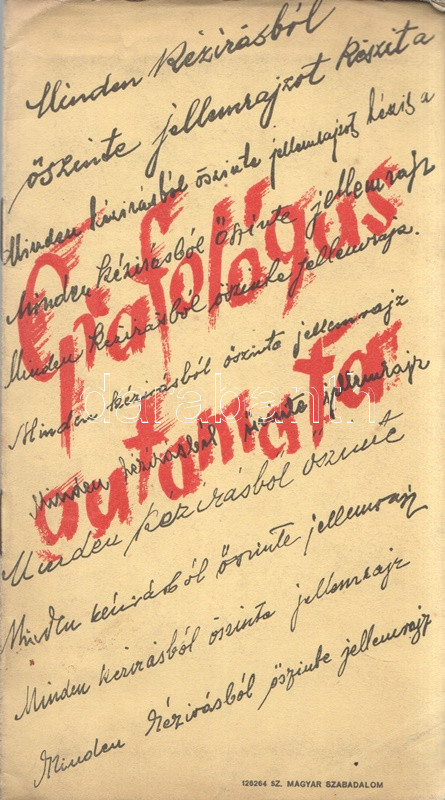 Minden kézirásból
őszinte jellemrajzot készit a
Minden kézirásból őszinte jellemrajzot készit a
Minden kézirásból őszinte jellemrajz
Grafológus
Minden kézirásból őszinte jellemrajz.
Minden kézirásból őszinte jellemrajz
automata
Minden kézirásból őszinte jellemrajz
Minden kézirásból őszinte
Minden kézirásból őszinte jellemrajz
Minden kezirásból őszinte jellemrajz
Minden kézirásból őszinte jellemrajz
126264 SZ. MAGYAR SZABADALOM
darabanth